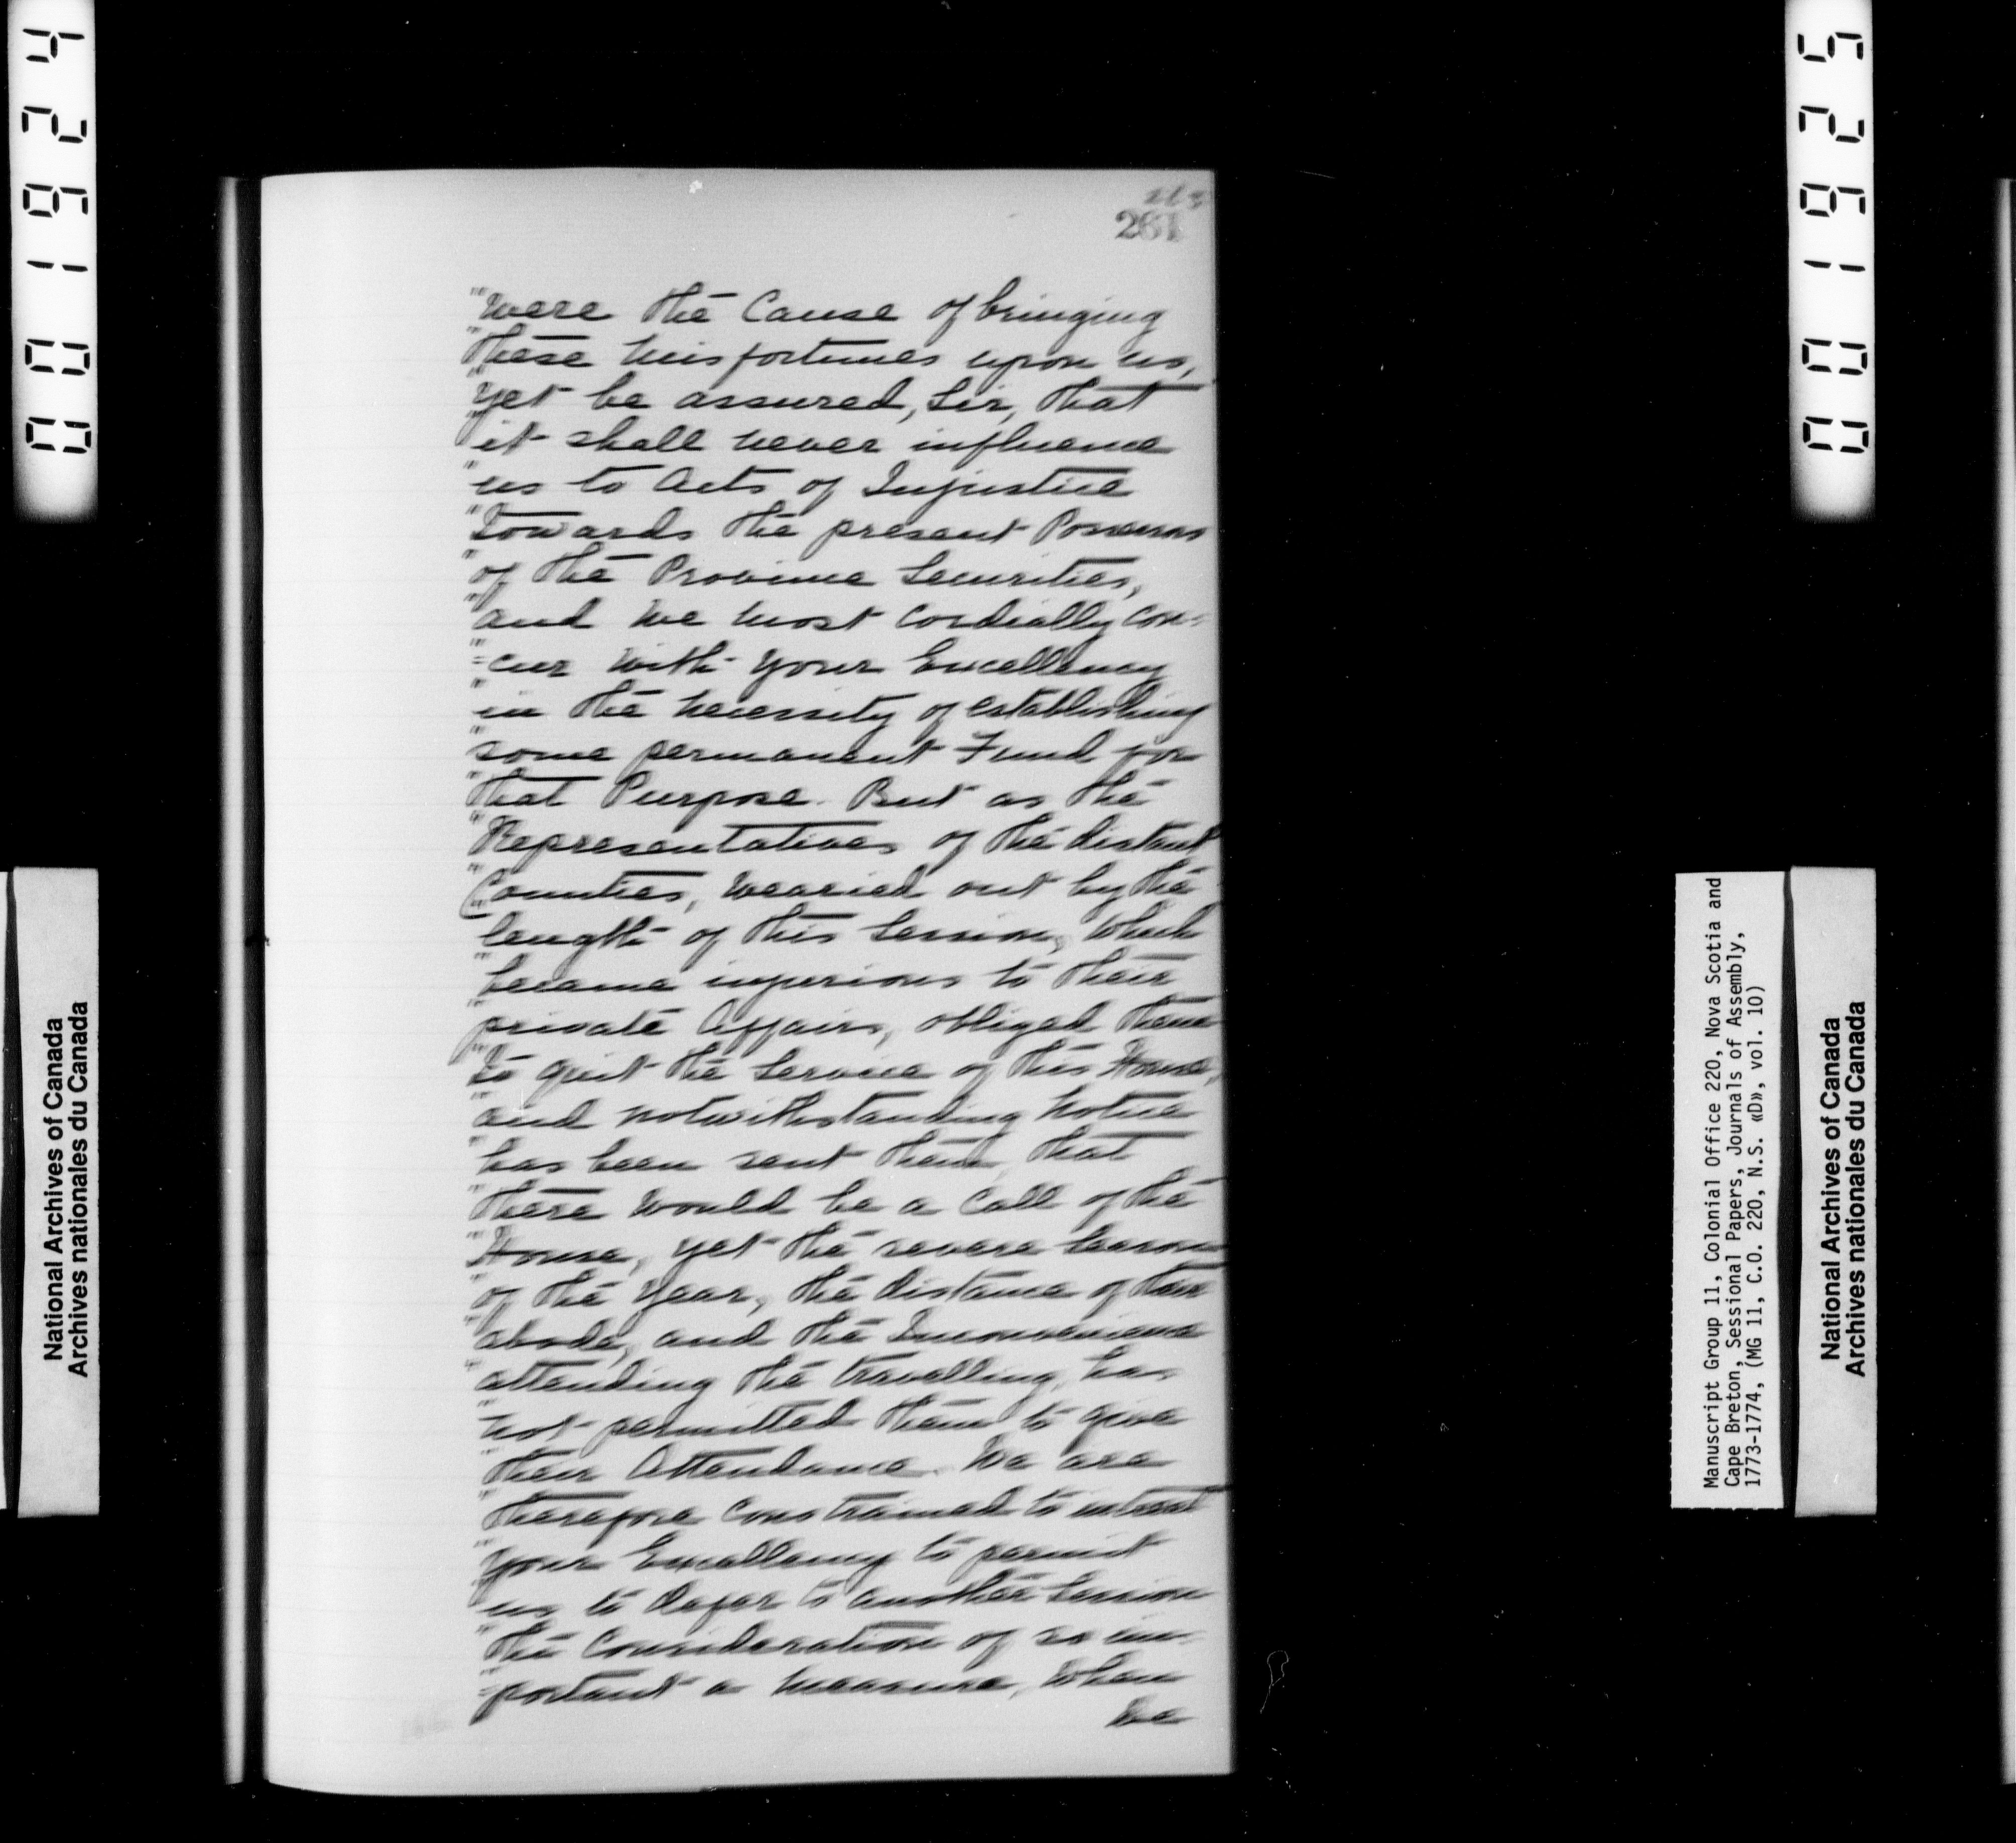 001924
001925
281
"were the Cause of bringing
"these misfortunes upon us,
"yet be assured, Sir, that
"it shall never influence
"us to Acts of Injustice
"Towards the present Possessors
"of the Province Securities,
"and we most Cordially con=
"=cur with your Excellency
"in the necessity of establishing
"some permanent Fund for
"that Purpose. But as the
"Representatives of the distant
"Counties, wearied out by the
"length of this Session, which
"became injurious to their
"private Affairs, obliged them
"to quit the Service of this House,
"and notwithstanding notice
"has been sent them, that
"there would be a Call of the
"House, yet the severe Season
"of the Year, the distance of their
"abode, and the Inconvenience
"attending the travelling, has
"not permitted them to give
"their Attendance. We are
"therefore constrained to intreat
"your Excellency to permit
"us to defer to another Session
"the Consideration of so im-
"=portant a measure, when
we
National Archives of Canada
Archives nationales du Canada
Manuscript Group 11, Colonial Office 220, Nova Scotia and
Cape Breton, Sessional Papers, Journals of Assembly,
1773-1774, (MG 11, C.O. 220, N.S. «D», vol. 10)
National Archives of Canada
Archives nationales du Canada